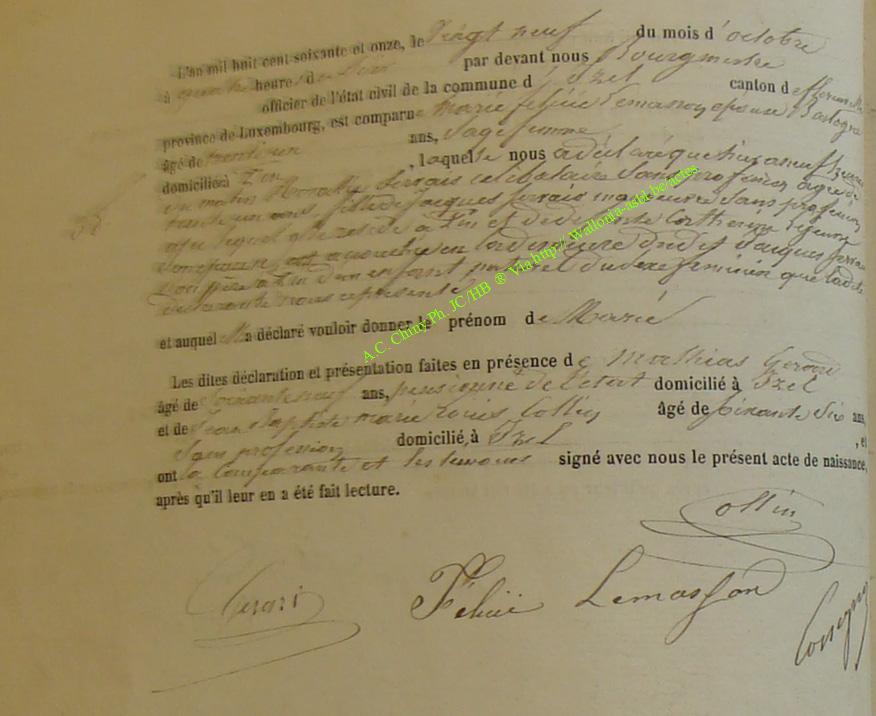 L'an mil huit cent soixante et onze, le vingt neuf du mois d'octobre
à quatre heures du soir par devant nous Bourgmestre
officier de l'état civil de la commune d'Izel canton de
province de Luxembourg, est comparue Marie Félicie Lemasson épouse Bastogne
âgé de trente un ans, sage femme
domicilié à Izel, laquelle nous a déclaré que hier a neuf heures
du matin Rosalie celibataire Sans profession agée de
trente un ans, fille de Jacques Sans profession
avec lequel elle reside a et de
en la demeure dudit Jacques
son père a d'un enfant naturel du sexe féminin que ladite
déclarante nous represente
et auquel a déclaré vouloir donner le prénom de Marie
Les dites déclaration et présentation faites en présence de Mathias Gerard
âgé de Soixante neuf ans, pensionné de l'etat domicilié à Izel
et de Jean Baptiste marie Louis Collin âgé de Six ans,
Sans profession domicilié, à Izel, et
ont la Comparante et les temoins signé avec nous le présent acte de naissance,
après qu'il leur en a été fait lecture.
Collin
Félicie Lemasson
A.C. Chiny Ph. JC/HB ® Via http://Wallonia-asbl.be/actes